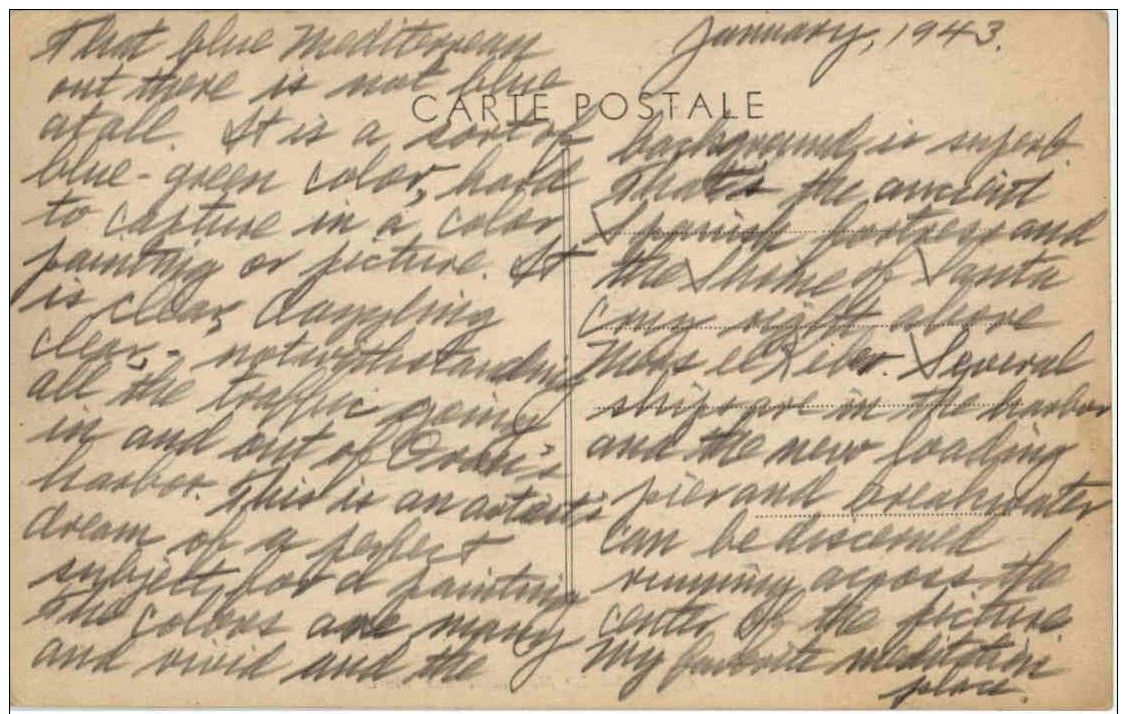 January, 1943.
CARTE POSTALE
That blue Mediterrean
out there is not blue
at all. It is a sort of
blue-green color, hard
to capture in a color
painting or picture. It
is clear, dazzling
clear, - notwithstanding
all the traffic going
in and out of Oran's
harbor. This is an artist's
dream of a perfect
subject for a painting
The colors are many
and vivid and the
background is superb.
That's the ancient
Spanish fortress and
the Shrine of Santa
Cruz right above
Mers el Kebir. Several
ships are in the harbor
and the new loading
pier and breakwater
can be discerned
running across the
center of the picture.
My favorite meditation
place.